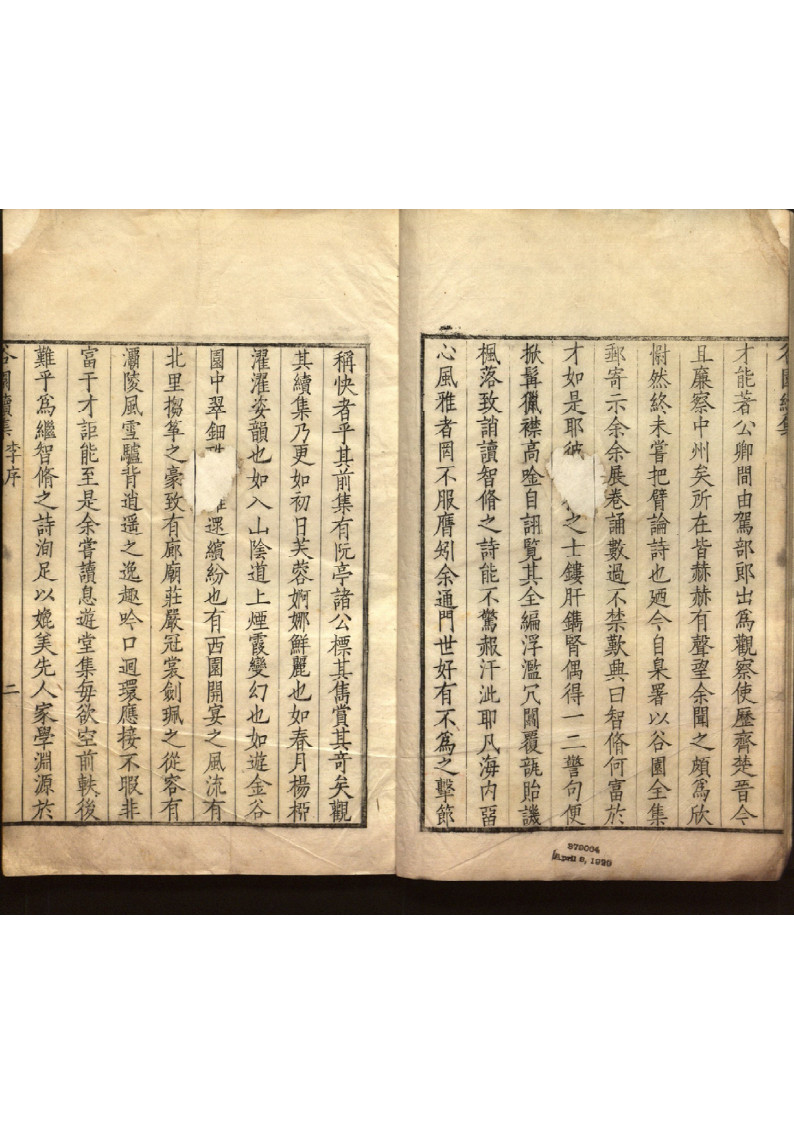 谷園續集
才能著公卿間由駕部郎出爲觀察使歷齊楚晉今
且廉察中州矣所在皆赫赫有聲望余聞之頗爲欣
慰然終未嘗把臂論詩也廼今自臬署以谷園全集
郵寄示余余展卷誦數過不禁歎典曰智脩何富於
才如是耶彼之士鏤肝鐫腎偶得一二警句便
掀髯獵襟高唫自詡覽其全編浮濫冗闒覆瓿貽譏
楓落致誚讀智脩之詩能不驚赧汗泚耶凡海内
心風雅者罔不服膺矧余通門世好有不爲之擊節
稱快者乎其前集有阮亭諸公標其雋賞其竒矣觀
其續集乃更如初日芙蓉婀娜鮮麗也如春月楊桺
濯濯姿韻也如入山陰道上煙霞變幻也如遊金谷
園中翠鈿還繽紛也有西園開宴之風流有
北里搊箏之豪致有廊廟莊嚴冠裳劍珮之從容有
灞陵風雪驢背逍遥之逸趣吟口迴環應接不暇非
富于才詎能至是余嘗讀息遊堂集每欲空前軼後
難乎爲繼智脩之詩洵足以媲美先人家學淵源於
谷園續集 李序 二
379004
April 8, 1929